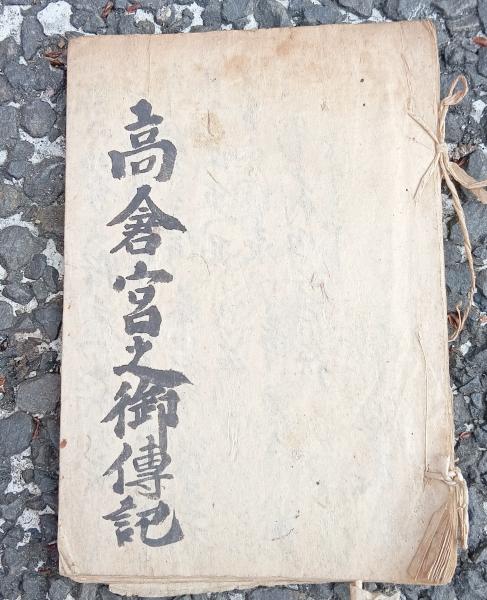 高倉宮之御傳記